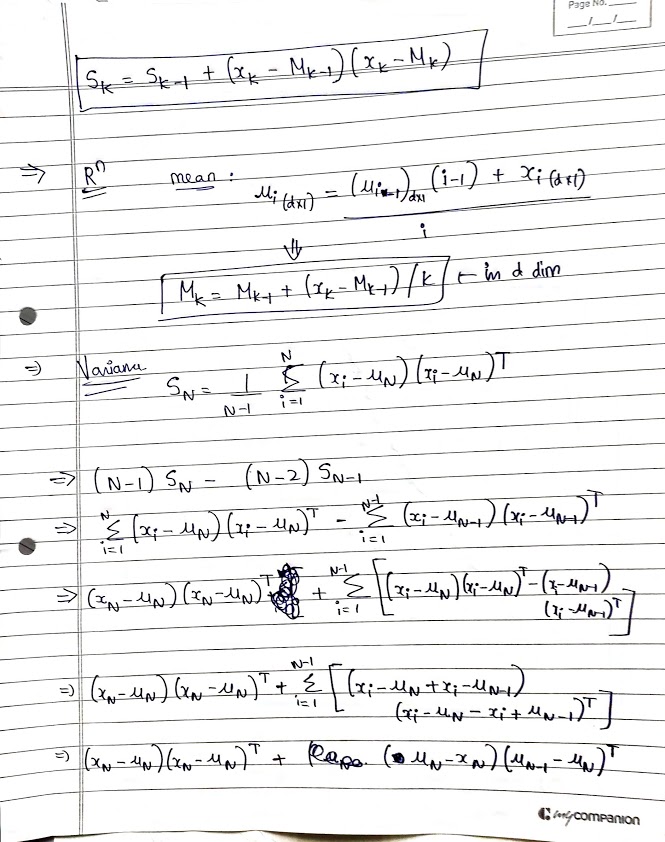 Page No.
S_k = S_{k-1} + (x_k - M_{k-1})(x_k - M_k)
⇒ R^n mean : μ_{i (d×1)} = ((μ_{i-1})_{d×1} (i-1) + x_{i (d×1)}) / i
⇓
M_k = M_{k-1} + (x_k - M_{k-1})/k ← in d dim
⇒ Variance S_N = 1/(N-1) Σ_{i=1}^{N} (x_i - μ_N)(x_i - μ_N)^T
⇒ (N-1) S_N - (N-2) S_{N-1}
⇒ Σ_{i=1}^{N} (x_i - μ_N)(x_i - μ_N)^T - Σ_{i=1}^{N-1} (x_i - μ_{N-1})(x_i - μ_{N-1})^T
⇒ (x_N - μ_N)(x_N - μ_N)^T + Σ_{i=1}^{N-1} [(x_i - μ_N)(x_i - μ_N)^T - (x_i - μ_{N-1})
(x_i - μ_{N-1})^T]
⇒ (x_N - μ_N)(x_N - μ_N)^T + Σ_{i=1}^{N-1} [(x_i - μ_N + x_i - μ_{N-1})
(x_i - μ_N - x_i + μ_{N-1})^T]
⇒ (x_N - μ_N)(x_N - μ_N)^T + (μ_N - x_N)(μ_{N-1} - μ_N)^T
mycompanion